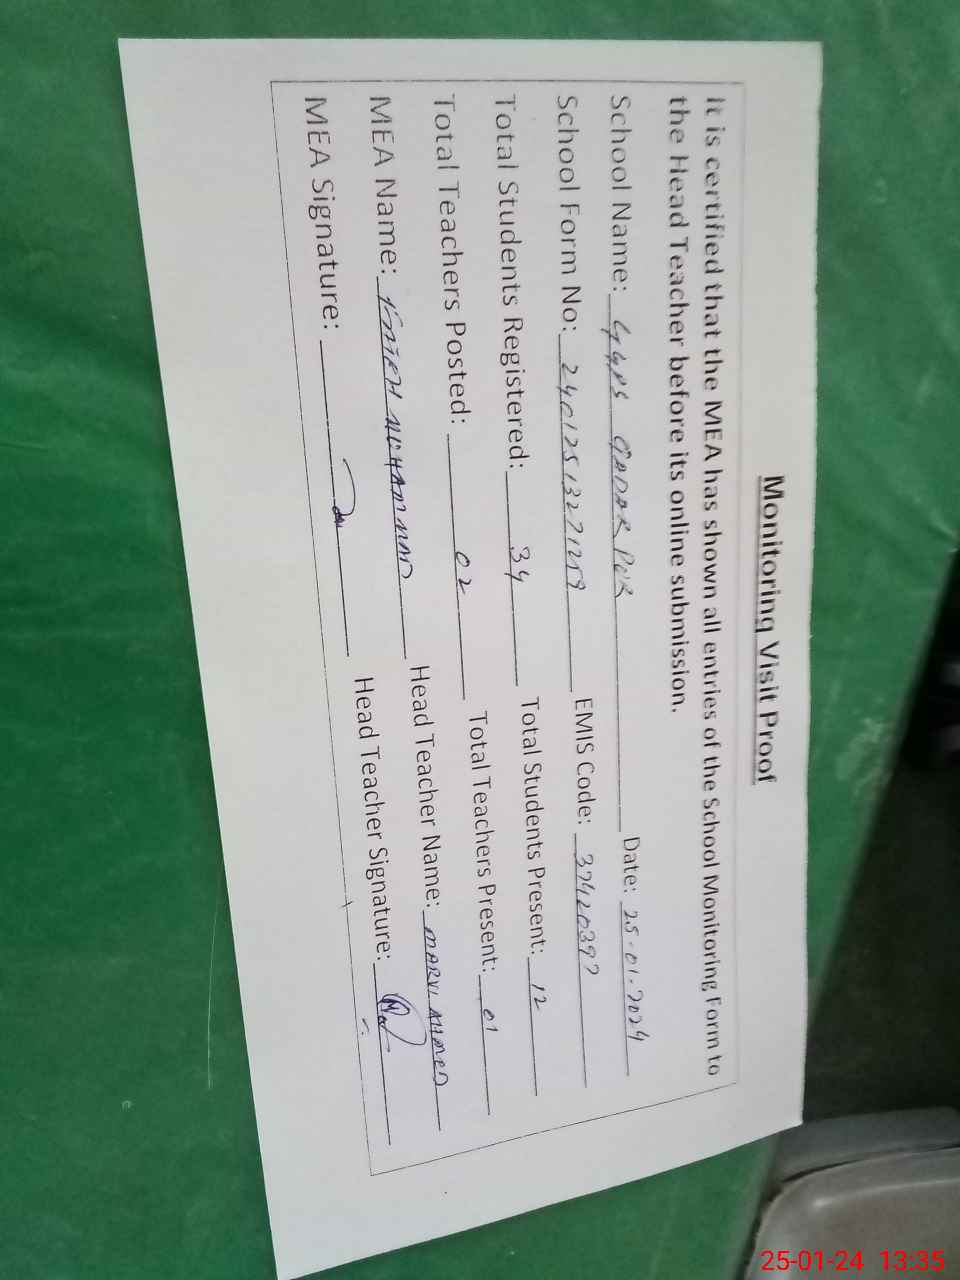 Monitoring Visit Proof
It is certified that the MEA has shown all entries of the School Monitoring Form to
the Head Teacher before its online submission.
School Name: GGPS QADAR PUR Date: 25-01-2024
School Form No: EMIS Code:
Total Students Registered: 34 Total Students Present: 12
Total Teachers Posted: 02 Total Teachers Present: 01
MEA Name: MUHAMMAD Head Teacher Name: MARVI AHMED
MEA Signature: Head Teacher Signature:
25-01-24 13:35